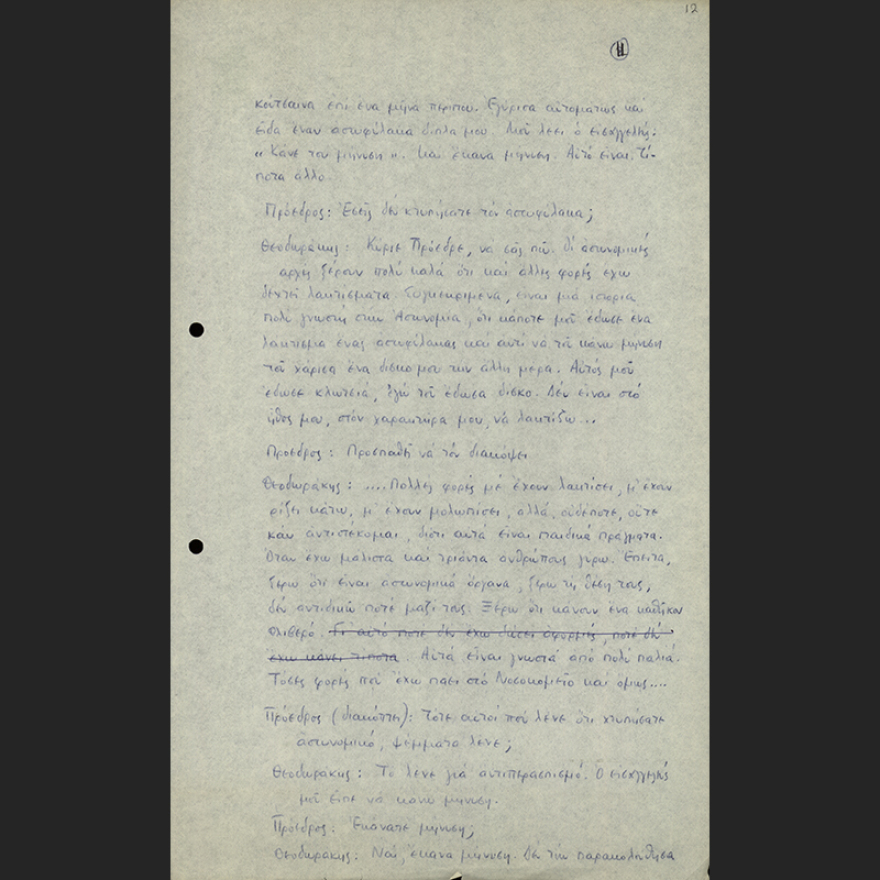 12
11
κούτσαινα ἐπί ἕνα μῆνα περίπου. Ἐγύρισα αὐτομάτως καί
εἶδα ἕναν ἀστυφύλακα δίπλα μου. Μοῦ λέει ὁ εἰσαγγελεύς:
«Κάνε του μήνυση». Καί ἔκανα μήνυση. Αὐτό εἶναι. Τί-
ποτα ἄλλο.
Πρόεδρος: Ἐσεῖς δέν κτυπήσατε τόν ἀστυφύλακα;
Θεοδωράκης: Κύριε Πρόεδρε, νά σᾶς πῶ. Οἱ ἀστυνομικές
ἀρχές ξέρουν πολύ καλά ὅτι καί ἄλλες φορές ἔχω
δεχτεῖ λακτίσματα. Συγκεκριμένα, εἶναι μιά ἱστορία
πολύ γνωστή στήν Ἀστυνομία, ὅτι κάποτε μοῦ ἔδωσε ἕνα
λάκτισμα ἕνας ἀστυφύλακας καί ἀντί νά τοῦ κάνω μήνυση
τοῦ χάρισα ἕνα δίσκο μου τήν ἄλλη μέρα. Αὐτός μοῦ
ἔδωσε κλωτσιά, ἐγώ τοῦ ἔδωσα δίσκο. Δέν εἶναι στό
ἦθος μου, στόν χαρακτήρα μου, νά λακτίζω...
Πρόεδρος: Προσπαθεῖ νά τόν διακόψει
Θεοδωράκης: ....Πολλές φορές μέ ἔχουν λακτίσει, μ' ἔχουν
ρίξει κάτω, μ' ἔχουν μωλωπίσει, ἀλλά, οὐδέποτε, οὔτε
κἄν ἀντιστέκομαι, διότι αὐτά εἶναι παιδικά πράγματα.
Ὅταν ἔχω μάλιστα καί τριάντα ἀνθρώπους γύρω. Ἔπειτα,
ξέρω ὅτι εἶναι ἀστυνομικά ὄργανα, ξέρω τή θέση τους,
δέν ἀντιδικῶ ποτέ μαζί τους. Ξέρω ὅτι κάνουν ἕνα καθῆκον
θλιβερό. Γι' αὐτό ποτέ δέν ἔχω δώσει ἀφορμές, ποτέ δέν
ἔχω κάνει τίποτα. Αὐτά εἶναι γνωστά ἀπό πολύ παλιά.
Τόσες φορές πού ἔχω πάει στό Νοσοκομεῖο καί ὅμως....
Πρόεδρος (διακόπτει): Τότε αὐτοί πού λένε ὅτι χτυπήσατε
ἀστυνομικό, ψέμματα λένε;
Θεοδωράκης: Τό λένε γιά ἀντιπερασπισμό. Ὁ εἰσαγγελεύς
μοῦ εἶπε νά κάνω μήνυση.
Πρόεδρος: Ἐκάνατε μήνυση;
Θεοδωράκης: Ναί, ἔκανα μήνυση. Δέν τήν παρακολούθησα